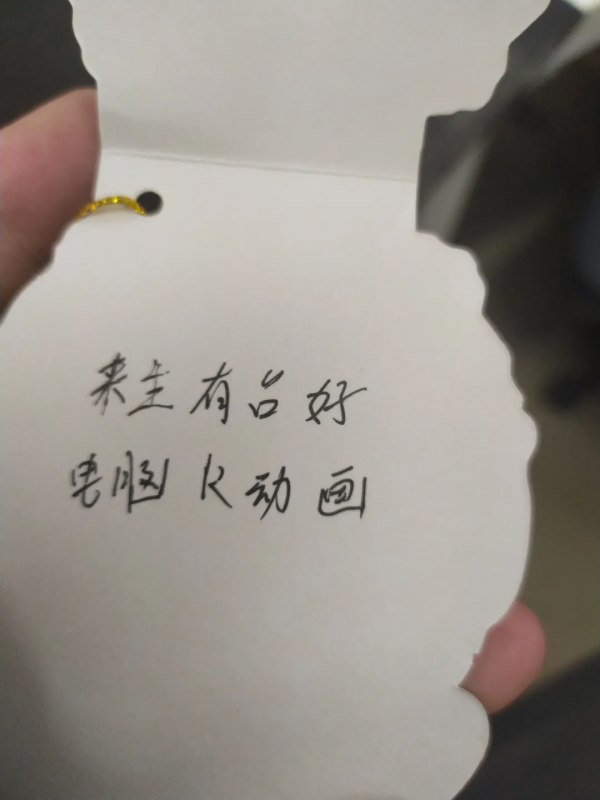 来生有台好
电脑K动画